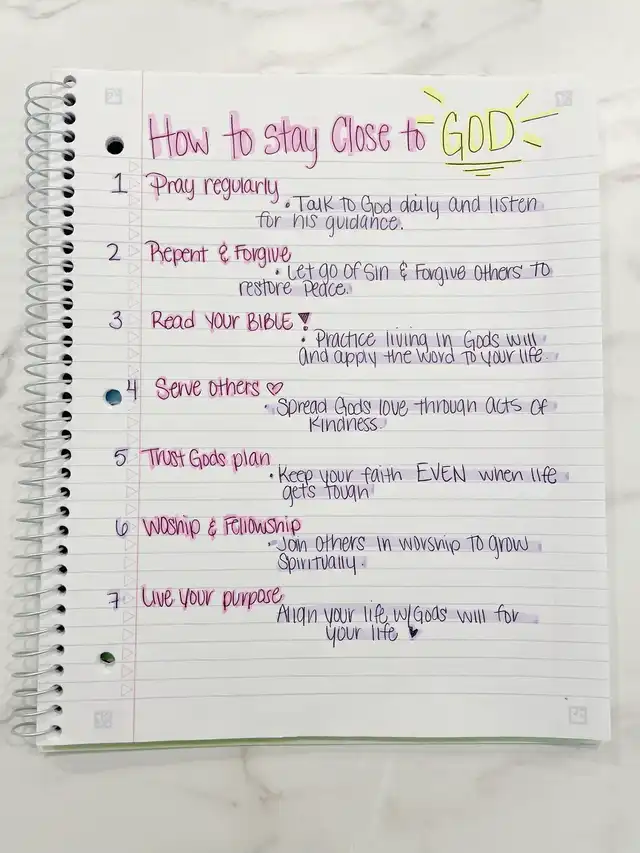 How to stay Close to GOD
1 Pray regularly
• Talk to God daily and listen
for his guidance.
2 Repent & Forgive
• Let go of Sin & Forgive others to
restore Peace.
3 Read your BIBLE!
• Practice living in Gods will
and apply the word to your life.
4 Serve others ♡
• Spread Gods love through acts of
kindness.
5 Trust Gods plan
• Keep your faith EVEN when life
gets tough
6 Woship & Fellowship
• Join others in worship to grow
Spiritually.
7 Live your purpose
Align your life w/Gods will for
your life ♥